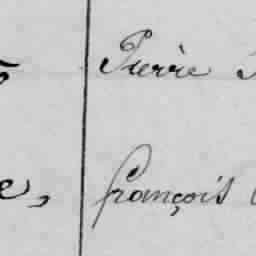 Pierre
e, françois